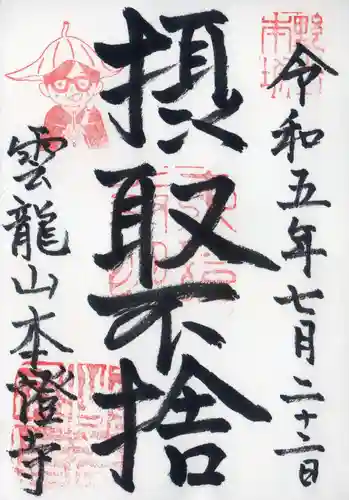 令和五年七月二十二日
摂取不捨
雲龍山本證寺
野寺
本坊